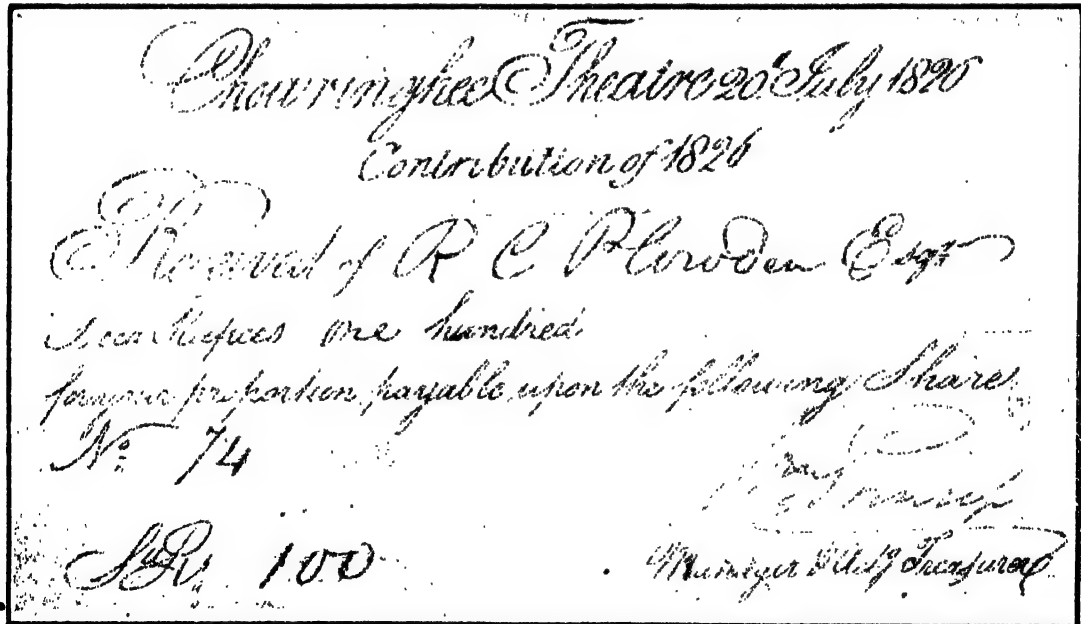 Chowringhee Theatre 20th July 1826
Contribution of 1826
Received of R C Plowden Esqr
Sicca Rupees one hundred
for your proportion payable upon the following Share
No 74
Prinsep
SaRs 100
Manager & Actg Treasurer